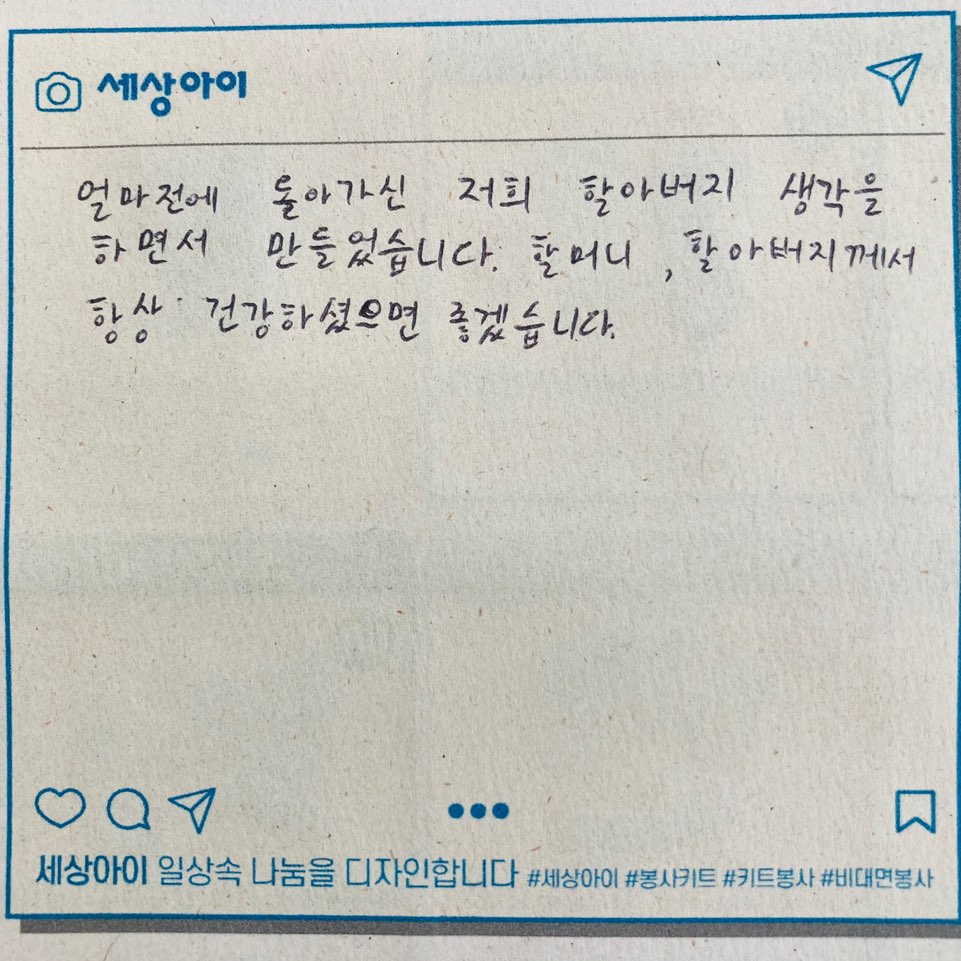 세상아이
얼마전에 돌아가신 저희 할아버지 생각을
하면서 만들었습니다. 할머니, 할아버지께서
항상 건강하셨으면 좋겠습니다.
세상아이 일상속 나눔을 디자인합니다 #세상아이 #봉사키트 #키트봉사 #비대면봉사